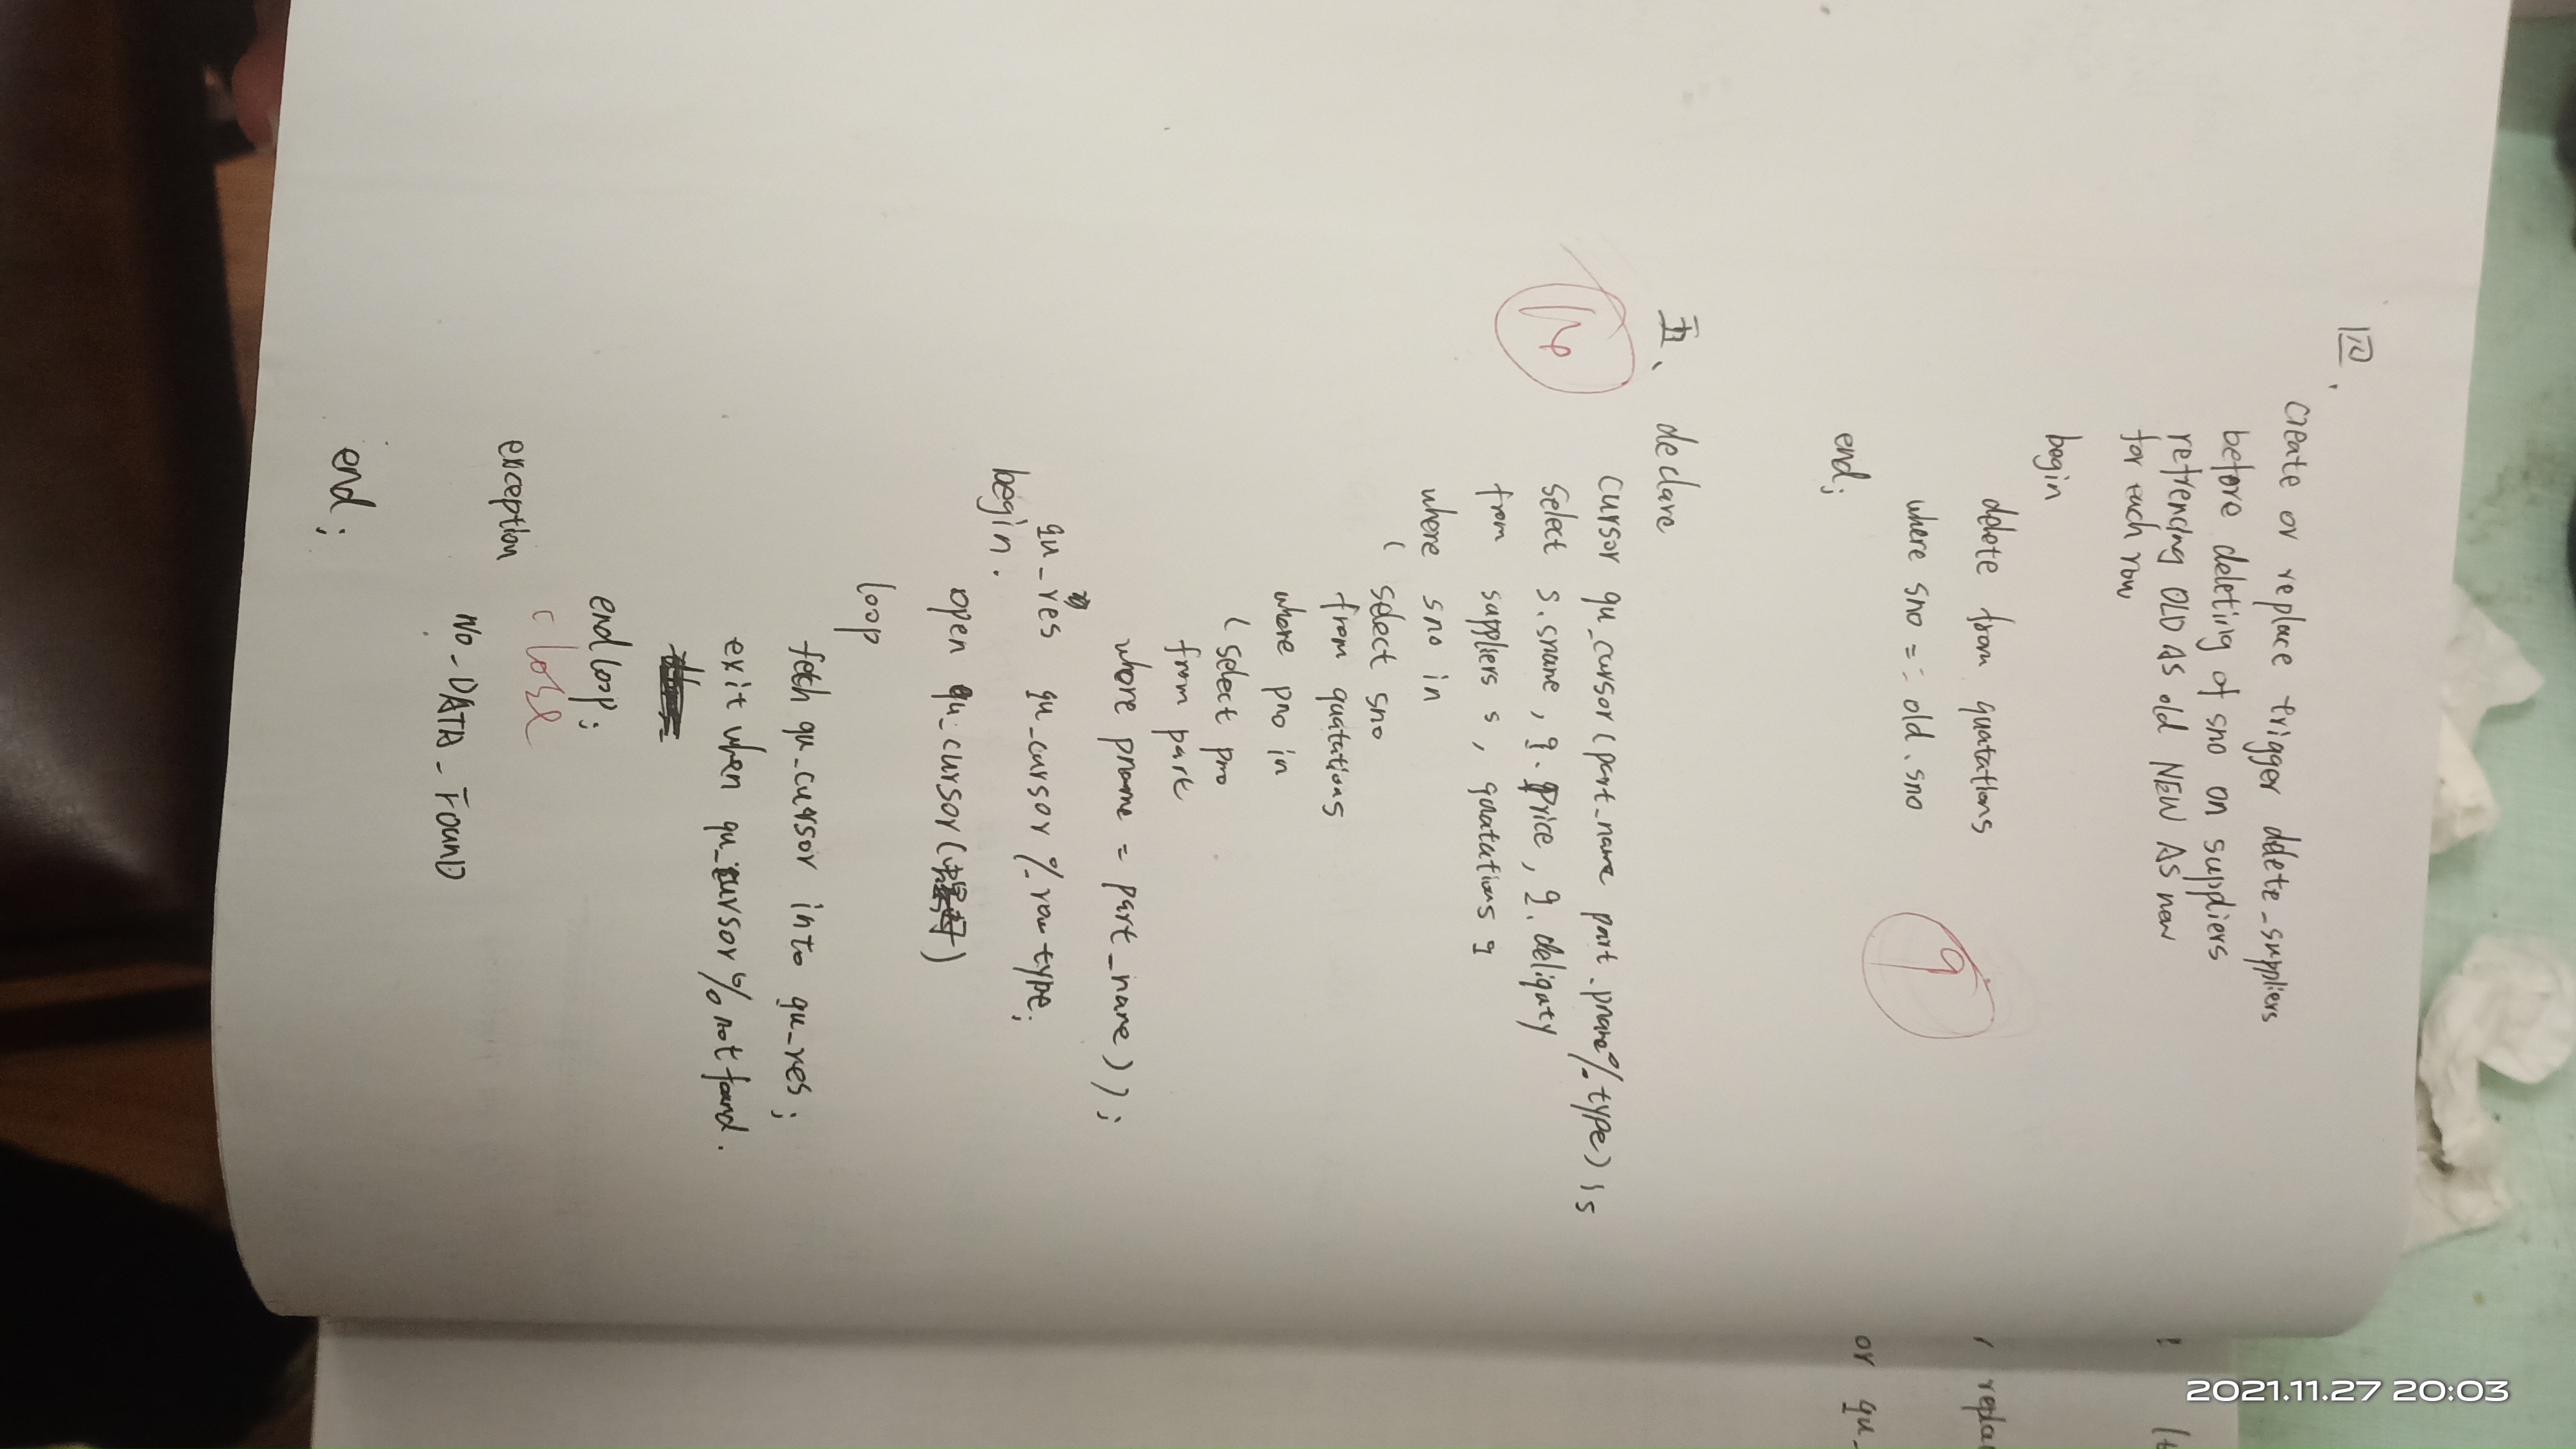 2021.11.27 20:03
四.
create or replace trigger delete_suppliers
before deleting of sno on suppliers
refrencing OLD AS old NEW AS new
for each row
begin
delete from quatations
where sno = : old . sno
9
end;
五、 declare
cursor qu_cursor (part_name part.pname%type) is
select s.sname , q.price , q.deliqaty
from suppliers s , quatations q
where sno in
( select sno
from quatations
where pno in
( select pno
from part
where pname = part_name ) ) ;
qu_res qu_cursor % row type;
begin.
open qu_cursor ( )
loop
fetch qu_cursor into qu_res ;
exit when qu_cursor % not found .
end loop ;
close
exception
NO_DATA_FOUND
end ;
repla
or qu_